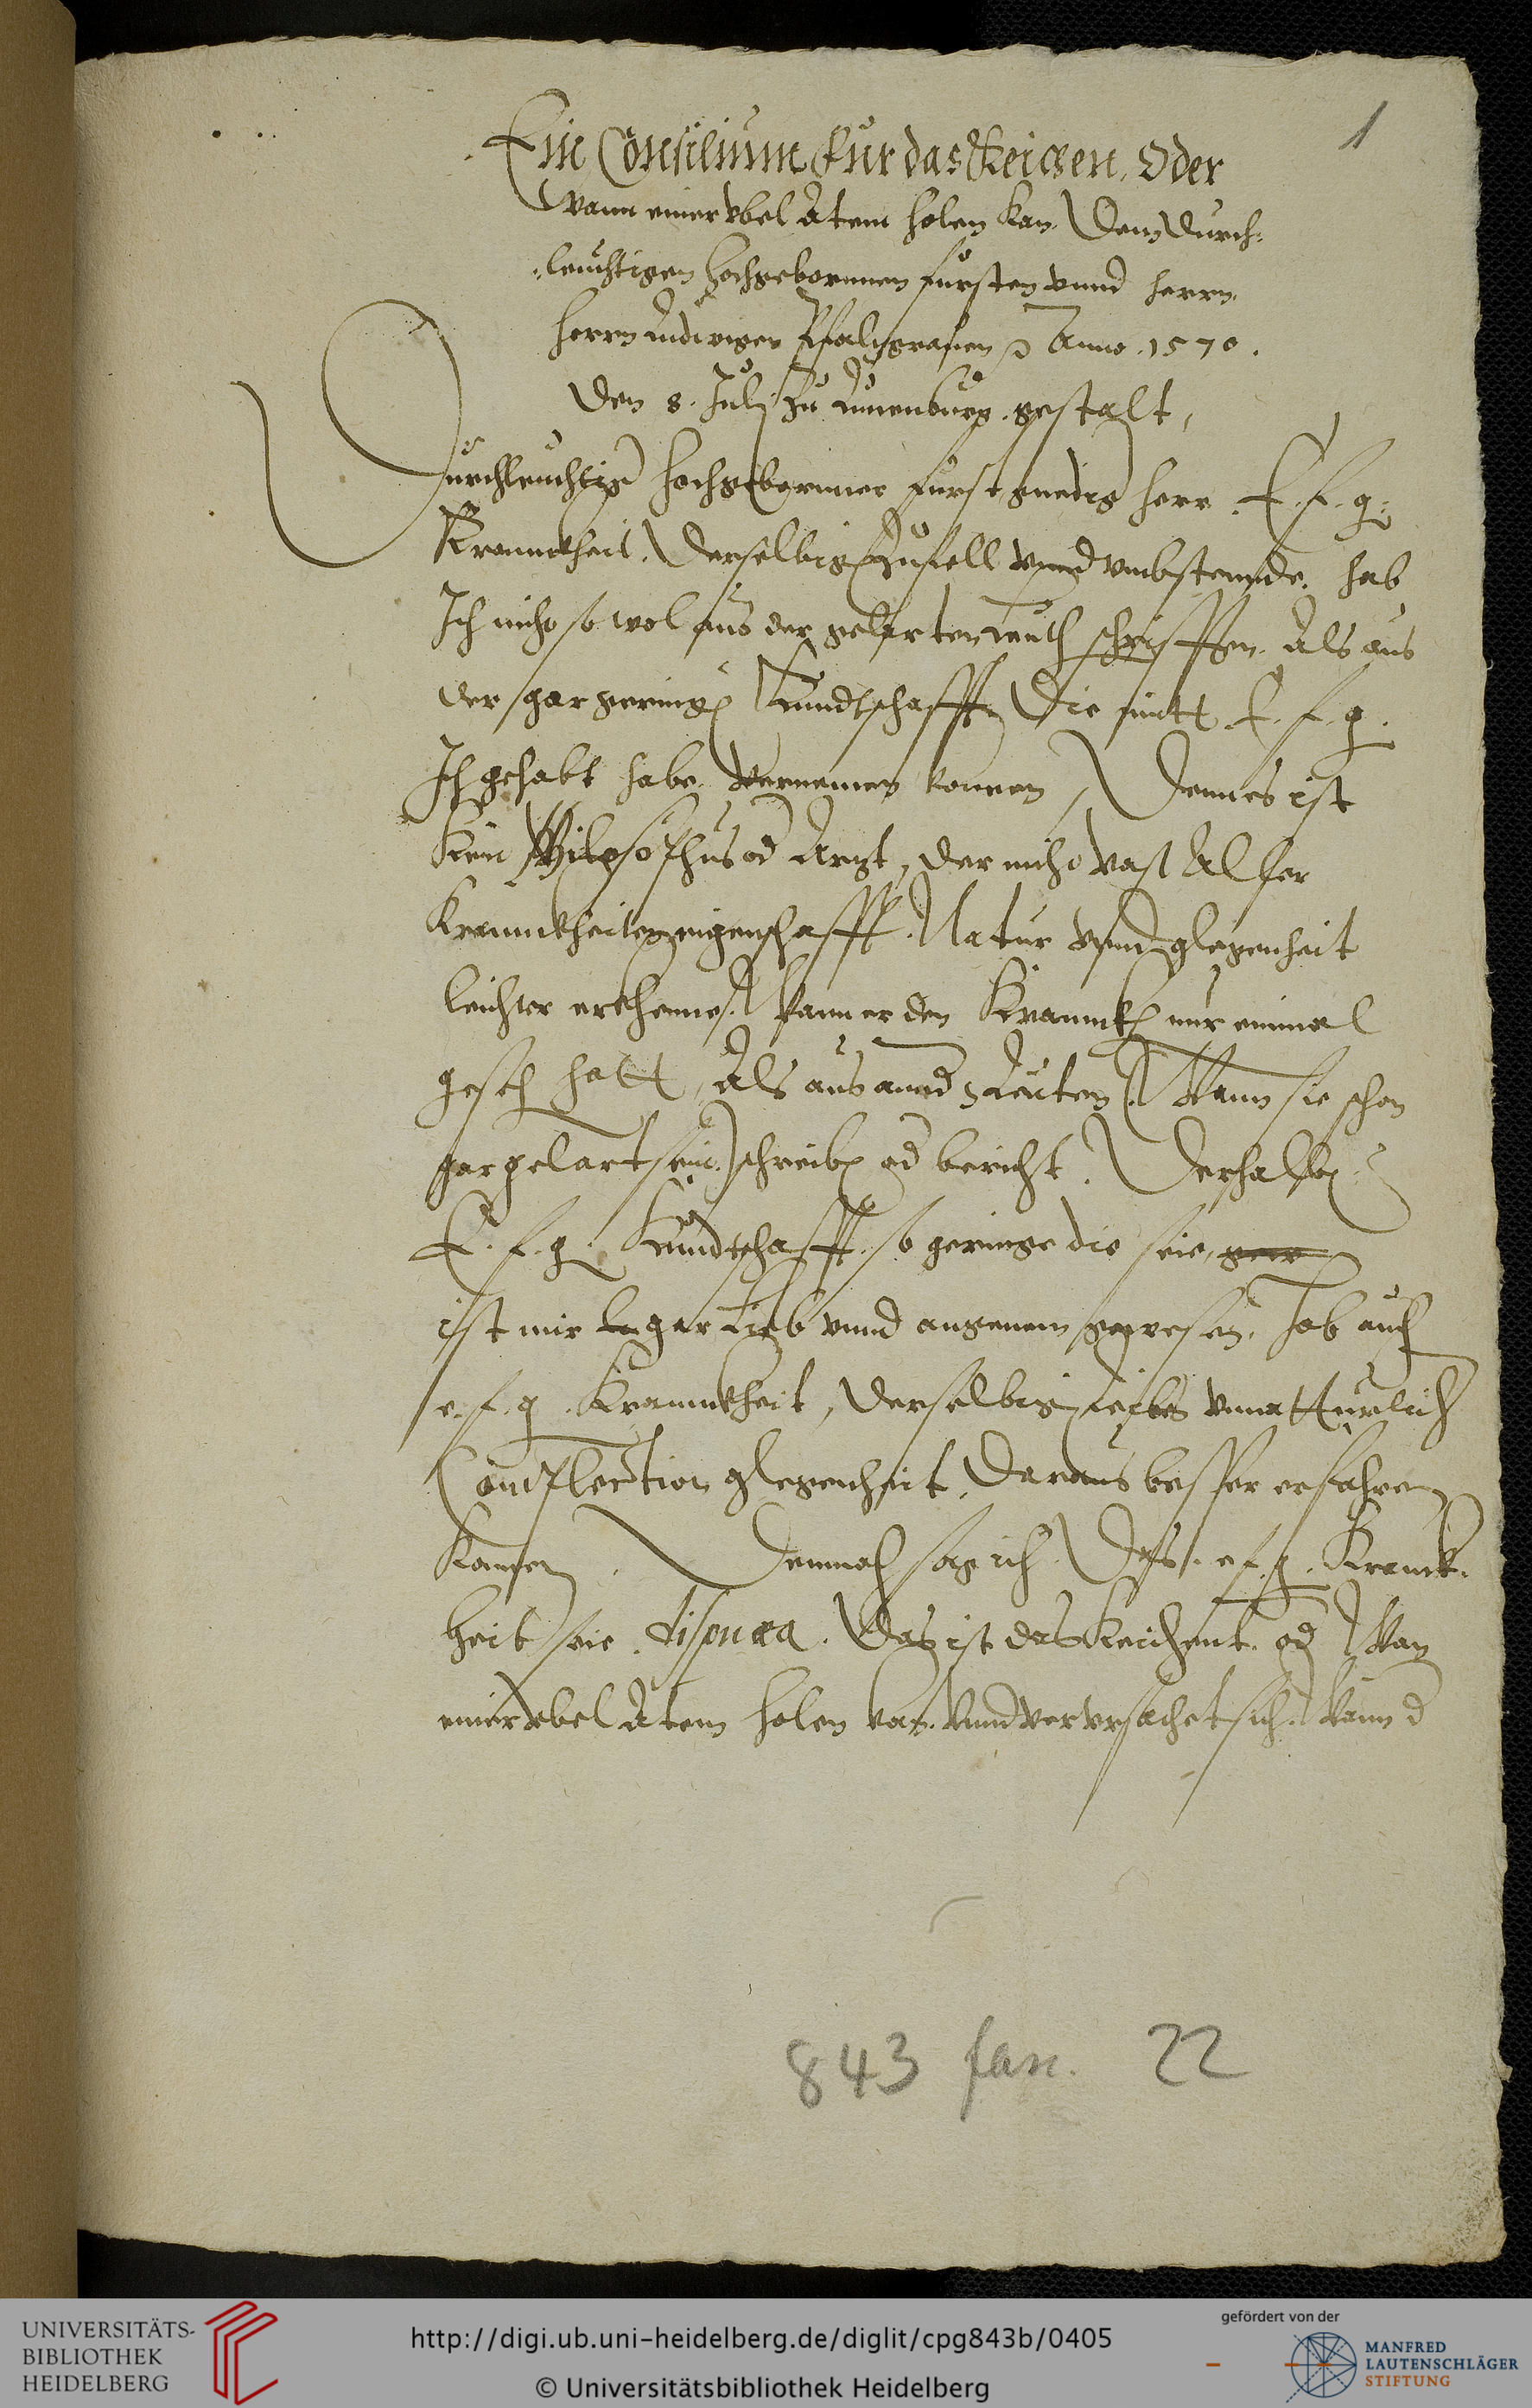 1
Ein Consilium fur das Keichen, Oder
Wann einer vbel Atem holen kan. Dem Durch-
leuchtigen hochgebornnen fursten vnnd herrn,
herrn Ludwigen Pfaltzgrafen Anno .1570.
den 8. Julj zu gestalt,
Durchleuchtig hochgebornner furst gnedig herr. E. f. g.
Kranncktheit, derselbig zufell vnnd vmbstennde, hab
Ich nicht so wol aus der gelerten leuth schrifften. Als aus
der gar gering kundtschafft, die mitt E. f. g.
Ich gehabt habe, vernemen konnen, Dann es ist
kein Philosophus od Artzt, der nicht vast Aller
Kranncktheiten eigenschafft. Natur vnnd glegenheit
leichter erkhenne, Wann er den Kranncken nur einmal
geseh hatt, Als aus annd Leuten, Wann sie schon
gar gelart sein, schreib od bericht. Derhalb
E. f. g. kundtschafft, so geringe die seie,
ist mir gar Lieb vnnd angenem gewesen, hab auch
e. f. g. Kranncktheit, derselbig Leibs vnnatturlich
Complection glegenheit, daraus besser erfahren
konnen. Demnach sag ich, Das e. f. g. Kranck-
heit seie. dispnaea. Das ist das Keichent. od Wan
einer vbel Atem holen kan. Vnnd verursachet sich, Wann d
843 fasc. 22
UNIVERSITÄTS-
BIBLIOTHEK
HEIDELBERG
http://digi.ub.uni-heidelberg.de/diglit/cpg843b/0405
© Universitätsbibliothek Heidelberg
gefördert von der
MANFRED
LAUTENSCHLÄGER
STIFTUNG